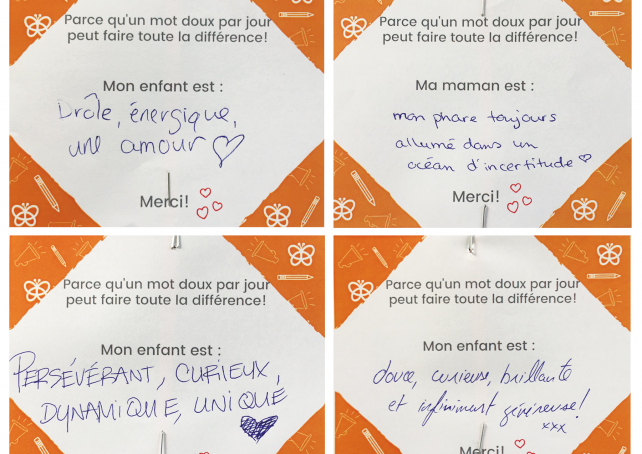 Parce qu'un mot doux par jour
peut faire toute la différence!
Mon enfant est :
Drôle, énergique,
une amour
Merci!
Parce qu'un mot doux par jour
peut faire toute la différence!
Ma maman est :
mon phare toujours
allumé dans un
océan d'incertitude
Merci!
Parce qu'un mot doux par jour
peut faire toute la différence!
Mon enfant est :
PERSÉVÉRANT, CURIEUX,
DYNAMIQUE, UNIQUE
Parce qu'un mot doux par jour
peut faire toute la différence!
Mon enfant est :
douce, curieuse, brillante
et infiniment généreuse!
xxx
Merci!